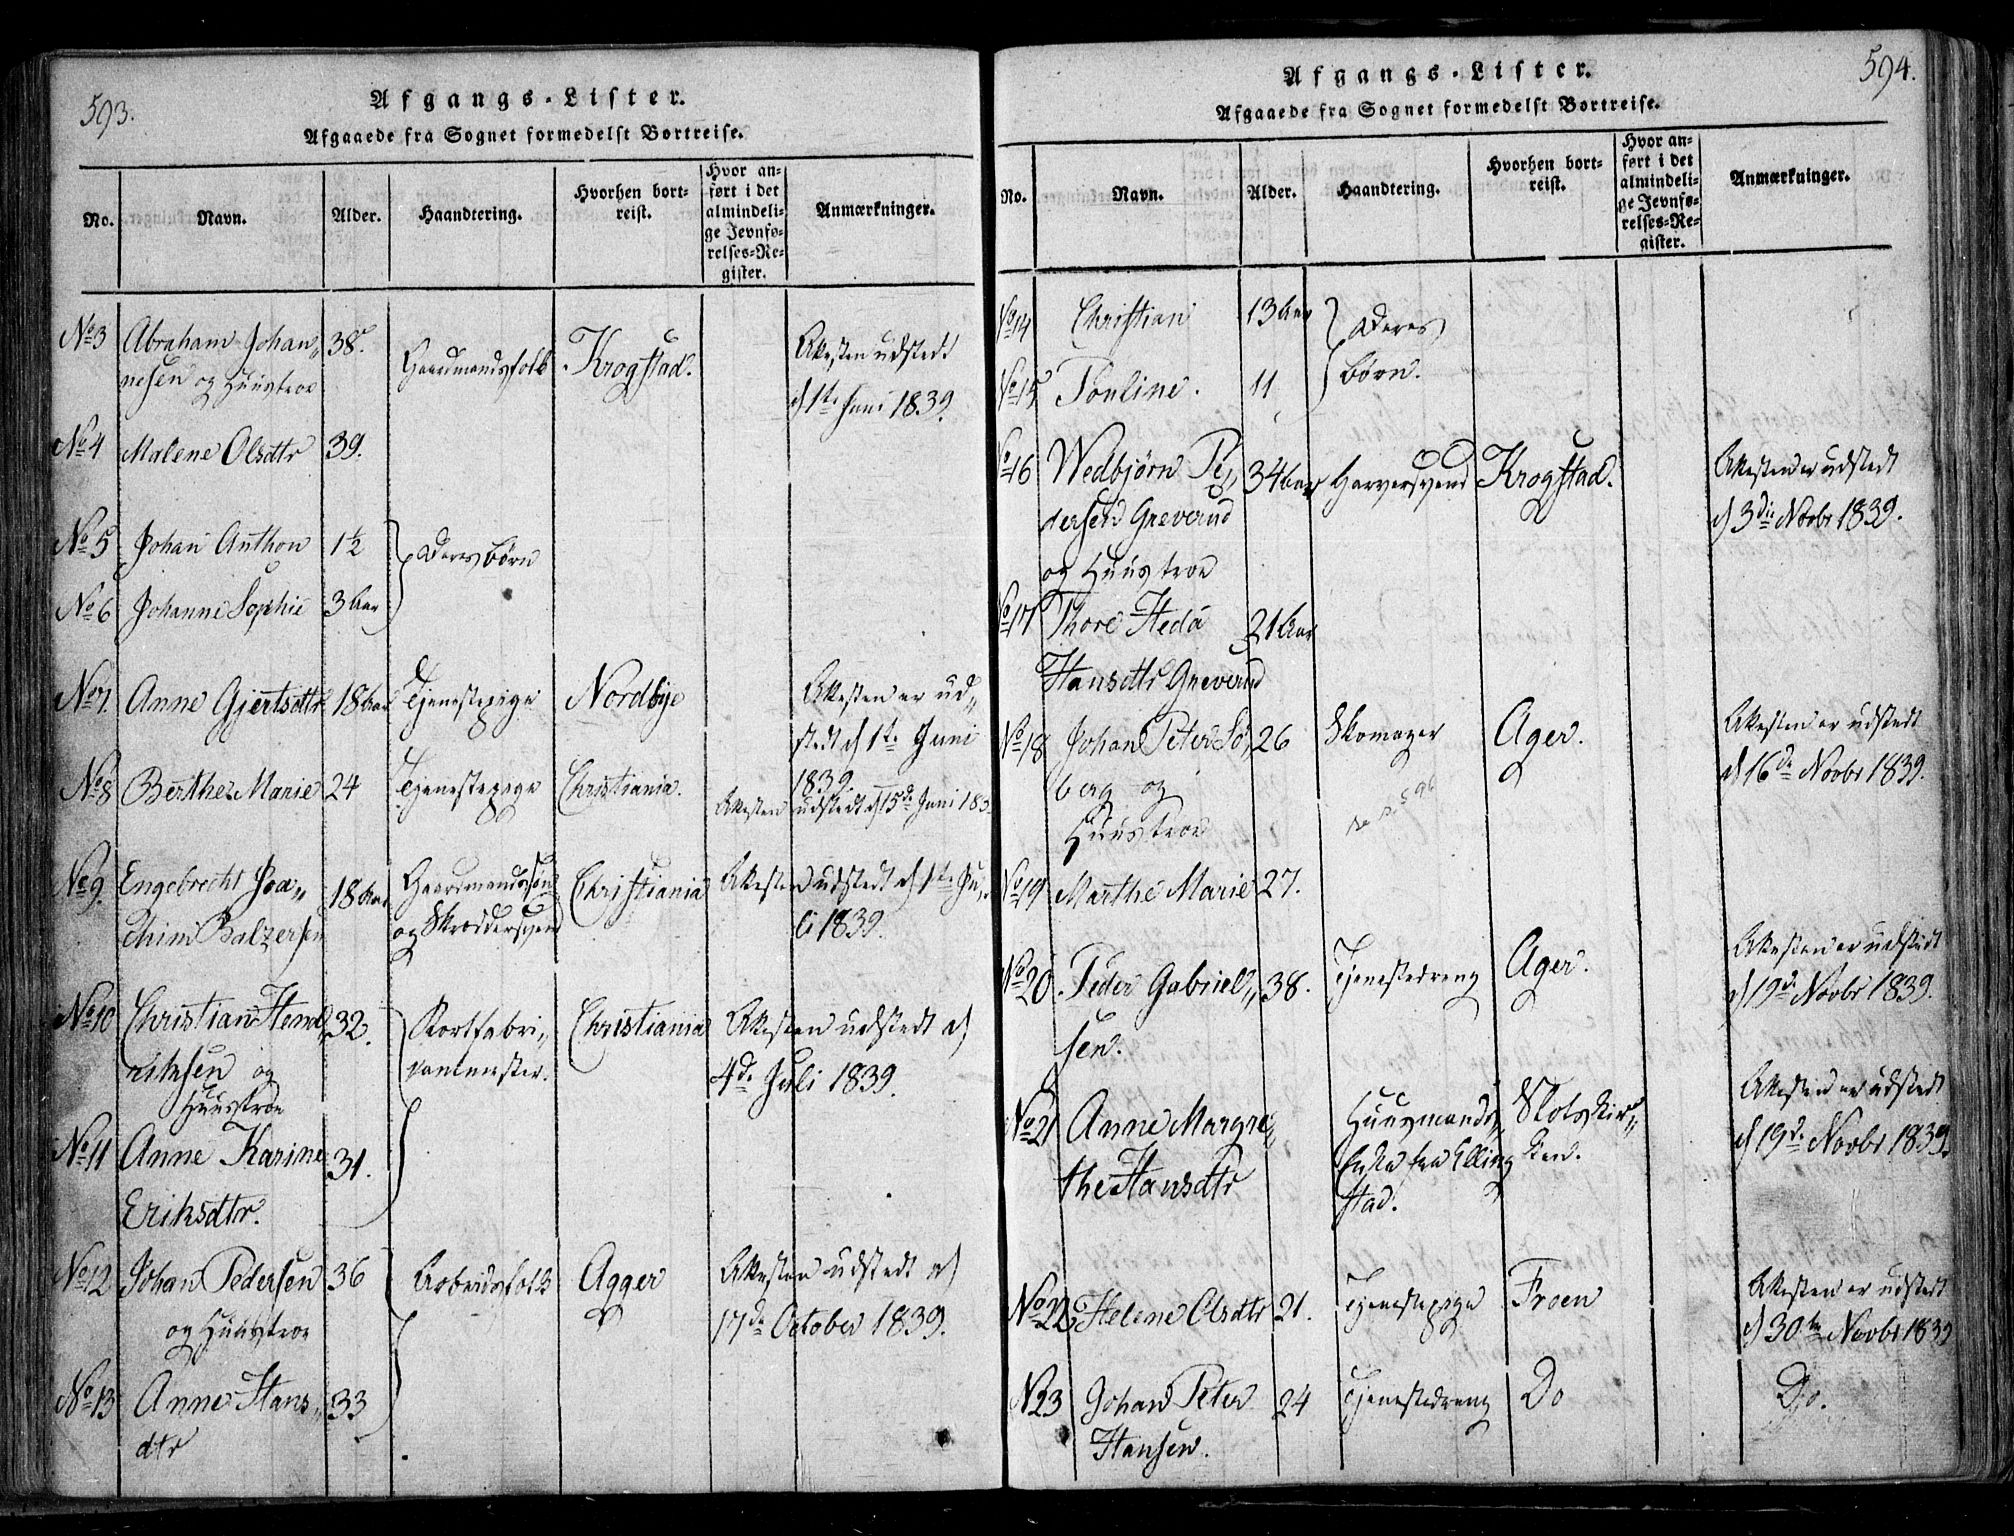 593.
Afgangs-Lister.
Afgaaede fra Sognet formedelst Bortreise.
No. Navn. Alder. Haandtering. Hvorhen bortreist. Hvor anført i det almindelige Jevnførelses-Register. Anmærkninger.
No 3 Abraham Johan„ 38. Gaardmandsfolk Krogstad. Attesten udstedt
nesen og Huustroe d 1ste Juni 1839.
No 4 Malene Olsdtr 39.
No 5 Johan Anthon 1½ Deres børn
No 6 Johanne Sophie 3 Aar
No 7. Anne Gjertsdtr 18 Aar Tjenestepige Nordbye Attesten er ud„
stedt d 1ste Juni
1839.
No 8 Berthe Marie 24 Tjenestepige Christiania. Attesten udstedt d 15de Juni 183
No 9. Engebrecht Joa„ 18 Aar Gaardmandssøn Christiania Attesten udstedt d 1ste Ju„
chim Balzersen og Skræddersvend li 1839.
No 10 Christian Hend 32. Kortfabri„ Christiania Attesten udstedt d
riksen og kantmester. 4de Juli 1839.
Huustroe
No 11 Anne Karine 31.
Eriksdtr.
No 12 Johan Pedersen 36 Arbeidsfolk Agger Attesten udstedt d
og Huustroe 17de October 1839.
No 13 Anne Hans„ 33
dtr
594.
Afgangs-Lister.
Afgaaede fra Sognet formedelst Bortreise.
No. Navn. Alder. Haandtering. Hvorhen bortreist. Hvor anført i det almindelige Jevnførelses-Register. Anmærkninger.
No 14 Christian 13 Aar Deres
No 15 Pouline. 11 børn.
No 16 Wedbjørn Pe„ 34 Aar Garversvend Krogstad. Attesten er udstedt
dersen Greverud d 3die Novbr 1839.
og Huustroe
No 17 Thore Heda 21 Aar
Hansdtr Greverud
No 18 Johan Peter Sø„ 26 Skomager Ager. Attesten er udstedt
berg og d 16de Novbr 1839.
Huustroe se s. 596
No 19 Marthe Marie 27.
No 20 Peder Gabriel„ 38. Tjenestedreng Ager. Attesten er udstedt
sen. d 19de Novbr 1839.
No 21 Anne Margre„ Huusmands„ Slotskir„ Attesten er udstedt
the Hansdtr Enke fra Elling ken. d 19de Novbr 1839.
stad.
No 22 Helene Olsdtr 21. Tjenestepige Froen Attesten er udstedt
d 30te Novbr 1839
N 23 Johan Peter 24 Tjenestedreng Do Do.
Hansen.